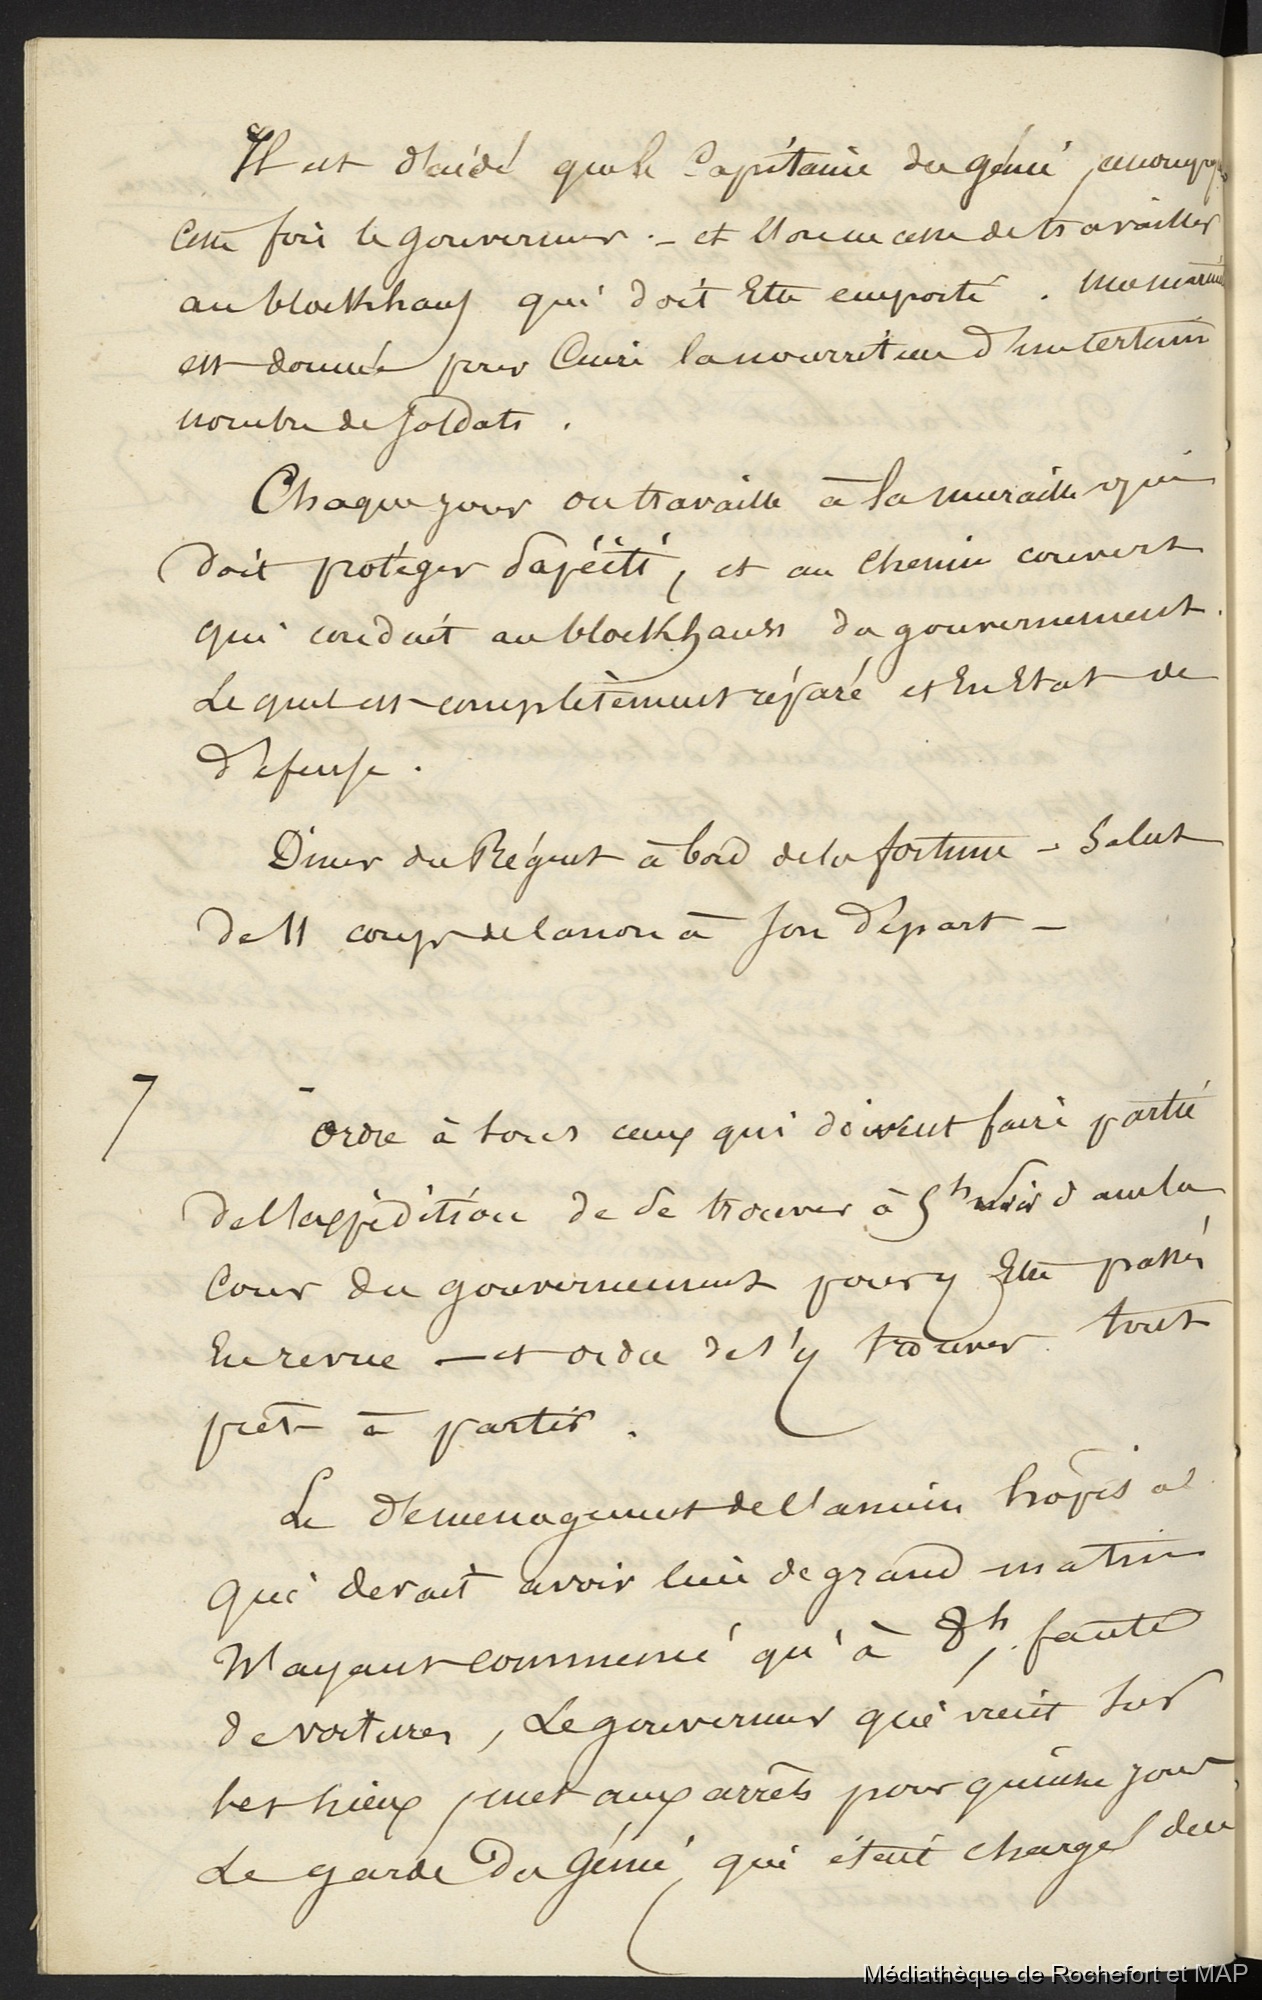 Il est décidé que le Capitaine du génie, accompagne
cette fois le gouverneur. – et l'on ne cesse de travailler
au blockhaus qui doit Etre emporté. une marmite
est donnée pour Cuire la nourriture d'un certain
nombre de soldats.
Chaque jour on travaille à la muraille qui
doit protéger Papéiti, et au chemin couvert
qui conduit au blockhauss du gouvernement.
Le quel est complètement réparé et En Etat de
défense.
Diner du Régent à bord de la fortune – Salut
de 11 coups de canon à son départ –
7
ordre à tous ceux qui doivent faire partie
de l'expédition de se trouver à 5h dans la
Cour du gouvernement pour y Etre passés
En revue – et ordre de s'y trouver tout
prêt à partir.
Le déménagement de l'ancien hôpital
qui devait avoir lieu de grand matin
N'ayant commencé qu'à 8h, faute
de voitures, Le gouverneur qui vient sur
les lieux, met aux arrêts pour quinze jours,
Le garde du Génie, qui était chargé de
Médiathèque de Rochefort et MAP